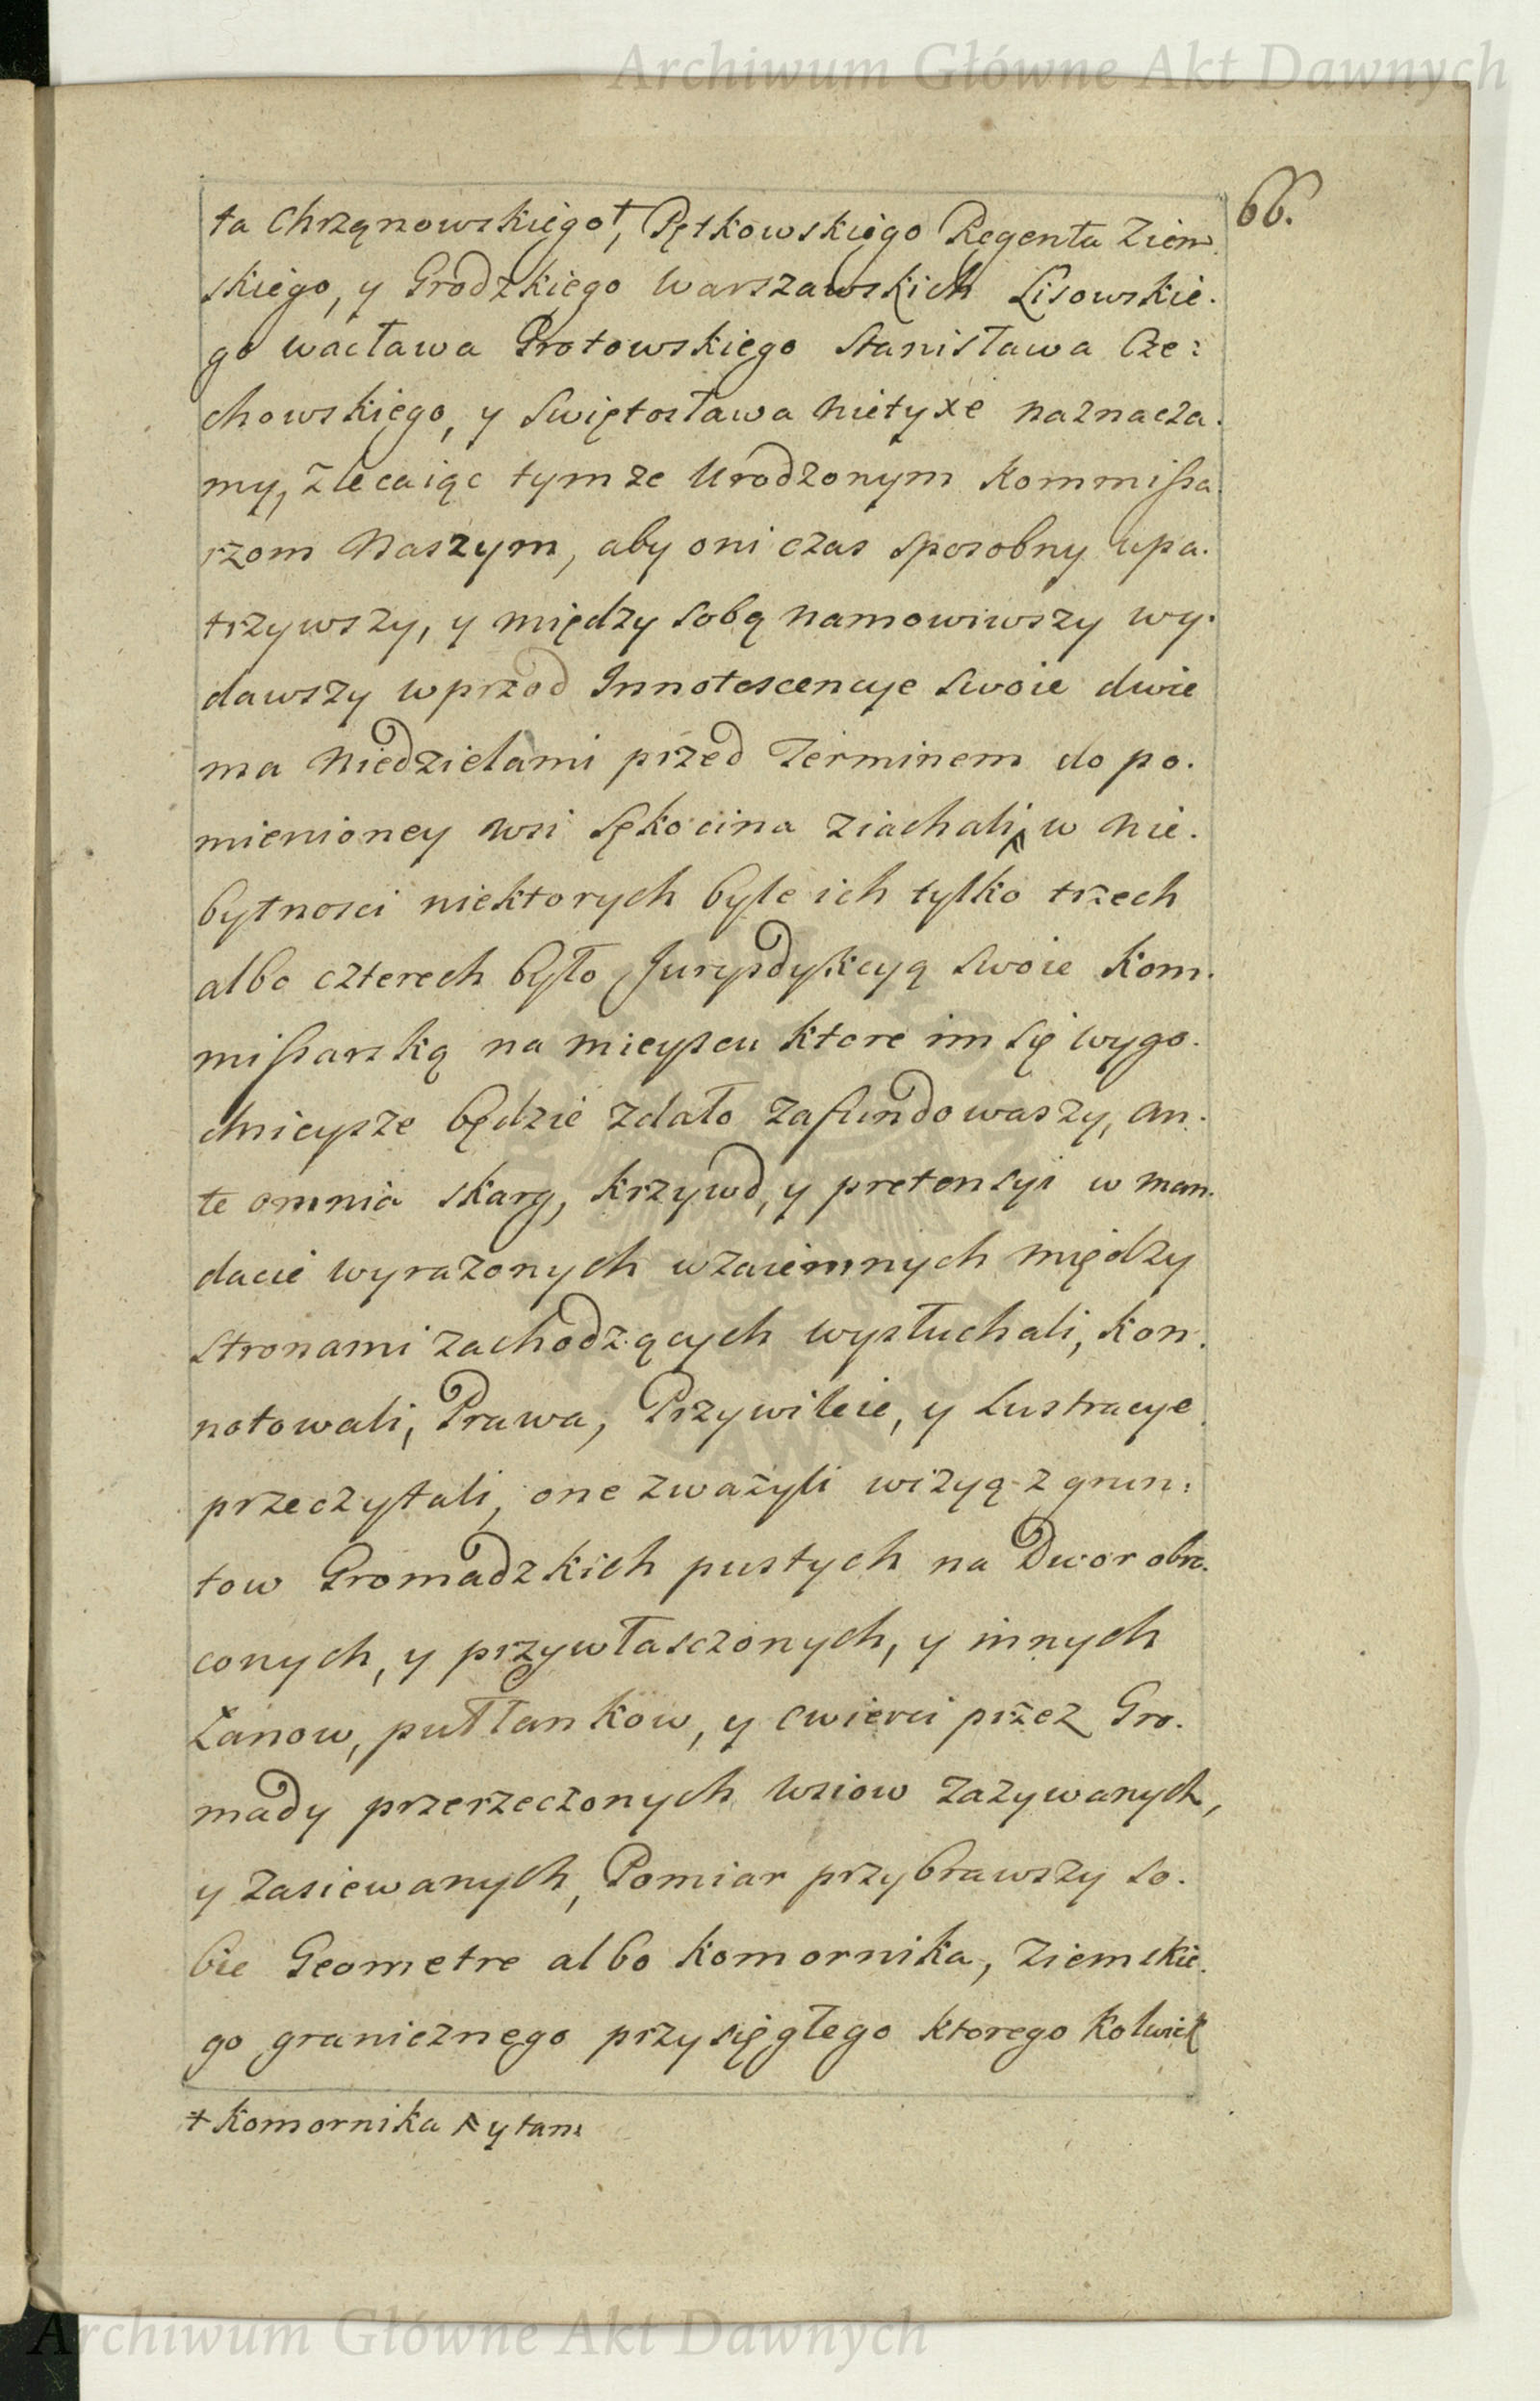 Archiwum Główne Akt Dawnych
66.
ta Chrząnowskiego†, Pętkowskiego Regenta Ziem
skiego, y Grodzkiego Warszawskich Lisowskie.
go wacława Grotowskiego Stanisława Cze:
chowskiego, y Swiętosława Nietyxe naznacza.
my, Zlecaiąc tymze Urodzonym Kommissa.
rzom Naszym, aby oni czas sposobny upa.
trzywszy, y między sobą namowiwszy wy.
dawszy wprzod Innotescencye swoie dwie
ma Niedzielami przed Terminem do po.
mienioney wsi Sękocina ziachali ⩞ w nie.
bytnosci niektorych byle ich tylko trzech
albo czterech było Jurysdykcyą swoie Kom.
missarską na mieyscu ktore im się wygo.
dnieysze będzie zdało zafundowaszy, an.
te omnia skarg, krzywd, y pretensyi w man.
dacie wyrazonych wzaiemnych między
stronami zachodzących wysłuchali, kon.
notowali, Prawa, Przywileie, y Lustracye
przeczytali, one zważyli wizyą z grun:
tow Gromadzkich pustych na Dwor obro.
conych, y przywłasczonych, y innych
Łanow, pułłankow, y cwierci przez Gro.
mady przerzeczonych wsiow zazywanych,
y zasiewanych, Pomiar przybrawszy so.
bie Geometre albo komornika, Ziemskie.
go granicznego przysięgłego ktorego kolwiek
† Komornika ⩞ y tam
Archiwum Główne Akt Dawnych